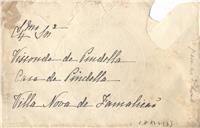 Visconde de Pindella
Casa de Pindella
Villa Nova de Famalicão